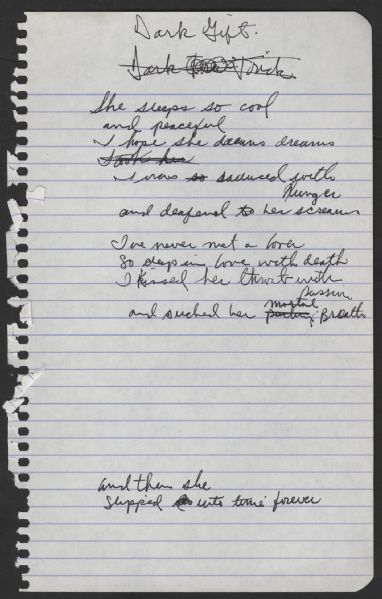 Dark Gift.
Dark Trick.
She sleeps so cool
and peaceful
I hope she dreams dreams
I took her
I was so saduced with
Hunger
and deafend to her screams
I've never met a lover
So deep in love with death
I kissed her throat with
Passion
and sucked her mortal
Breath
and then she
slipped into time forever